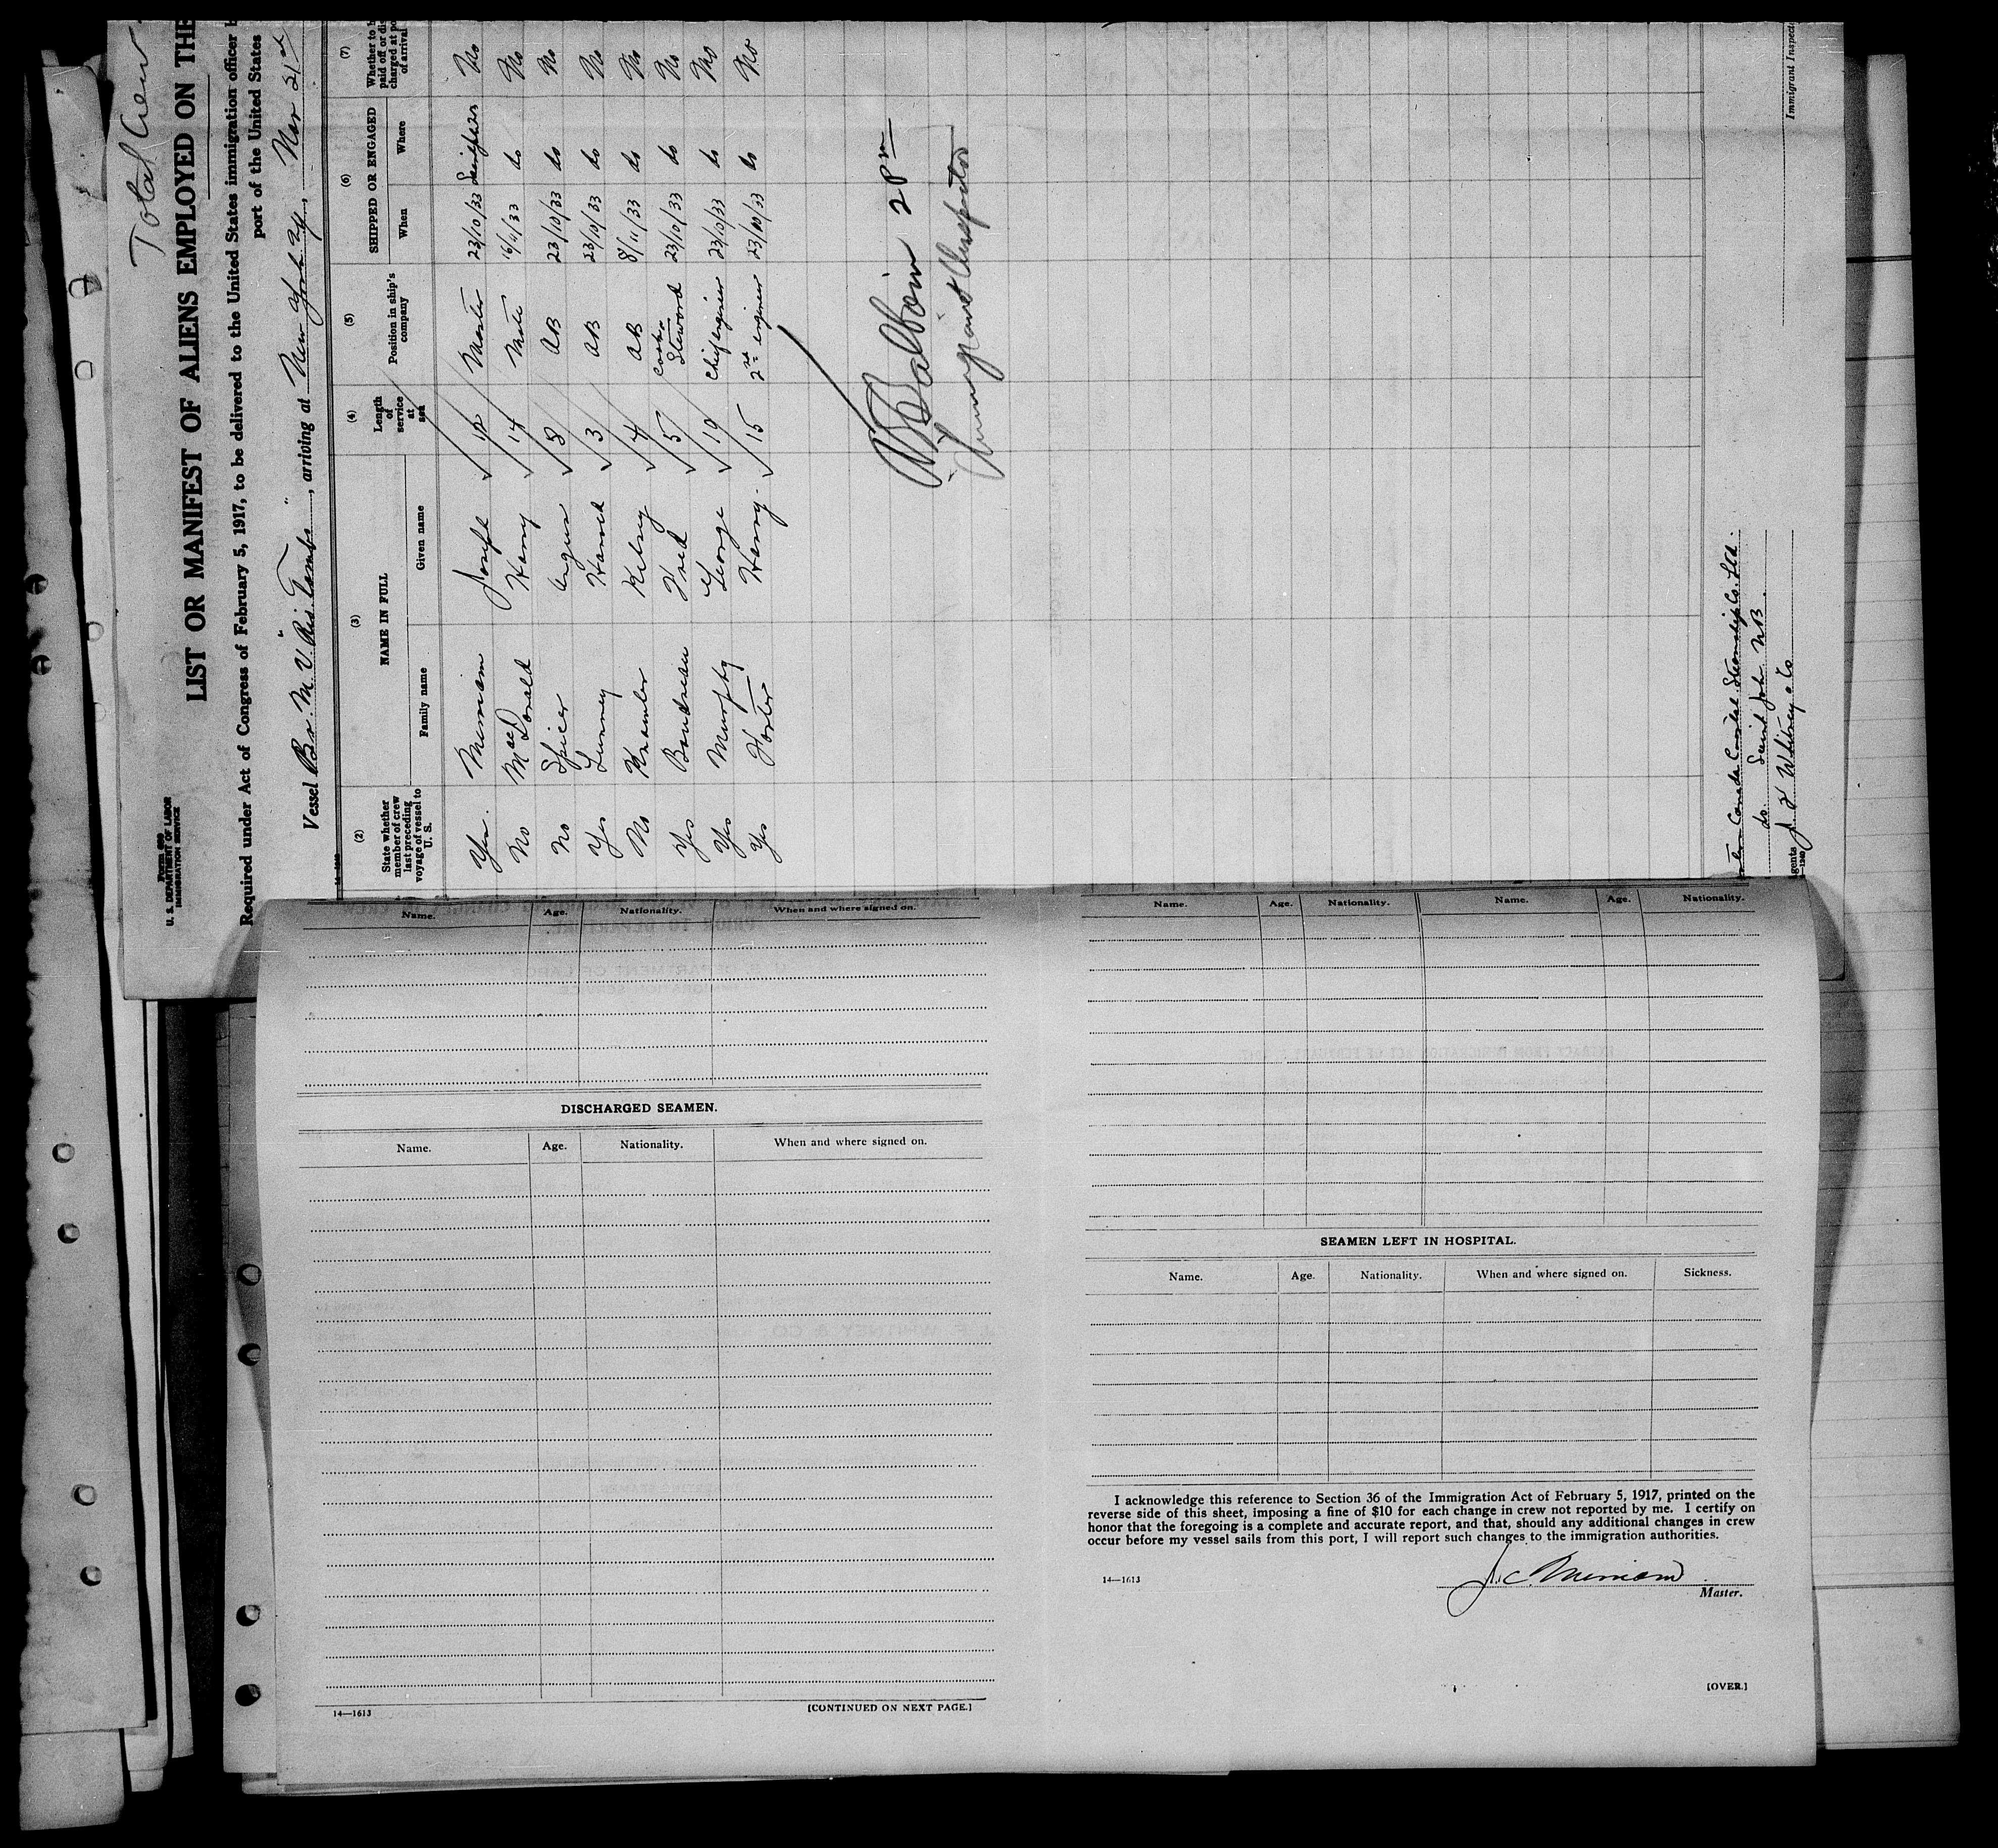 Total Crew
Form 689
U. S. DEPARTMENT OF LABOR
IMMIGRATION SERVICE
LIST OR MANIFEST OF ALIENS EMPLOYED ON THE
Required under Act of Congress of February 5, 1917, to be delivered to the United States immigration officer
port of the United States
Vessel Br. M. V. "Rio Tambo", arriving at New York NY, Nov 21st
(2) (3) (4) (5) (6) (7)
State whether member of crew last preceding voyage of vessel to U. S.
NAME IN FULL
Family name Given name
Length of service at sea
Position in ship's company
SHIPPED OR ENGAGED
When Where
Whether to paid off or dis charged at of arrival
Yes. Merriam Joseph 12 Master 23/10/33 No
No MacDonald Harry 14 Mate 16/11/33 do No
No Spicer Angus 8 AB 23/10/33 do No
Yes Lunney Harold 3 AB 23/10/33 do No
No Knowler Kelsey 4 AB 8/11/33 do No
Yes Boudreau Fred 5 Cook & Steward 23/10/33 do No
Yes Murphy George 19 Chief engineer 23/10/33 do No
Yes Foster Harry. 15 2nd engineer 23/10/33 do No
2 Pm
Immigrant Inspector
Canada Coastal Steamship Co. Ltd.
do Saint John NB.
Agents J F Whitney & Co
Immigrant Inspect
Name. Age. Nationality. When and where signed on.
DISCHARGED SEAMEN.
Name. Age. Nationality. When and where signed on.
14—1613
[CONTINUED ON NEXT PAGE.]
Name. Age. Nationality. Name. Age. Nationality.
SEAMEN LEFT IN HOSPITAL.
Name. Age. Nationality. When and where signed on. Sickness.
I acknowledge this reference to Section 36 of the Immigration Act of February 5, 1917, printed on the
reverse side of this sheet, imposing a fine of $10 for each change in crew not reported by me. I certify on
honor that the foregoing is a complete and accurate report, and that, should any additional changes in crew
occur before my vessel sails from this port, I will report such changes to the immigration authorities.
14—1613
J. C. Merriam
Master.
[OVER.]